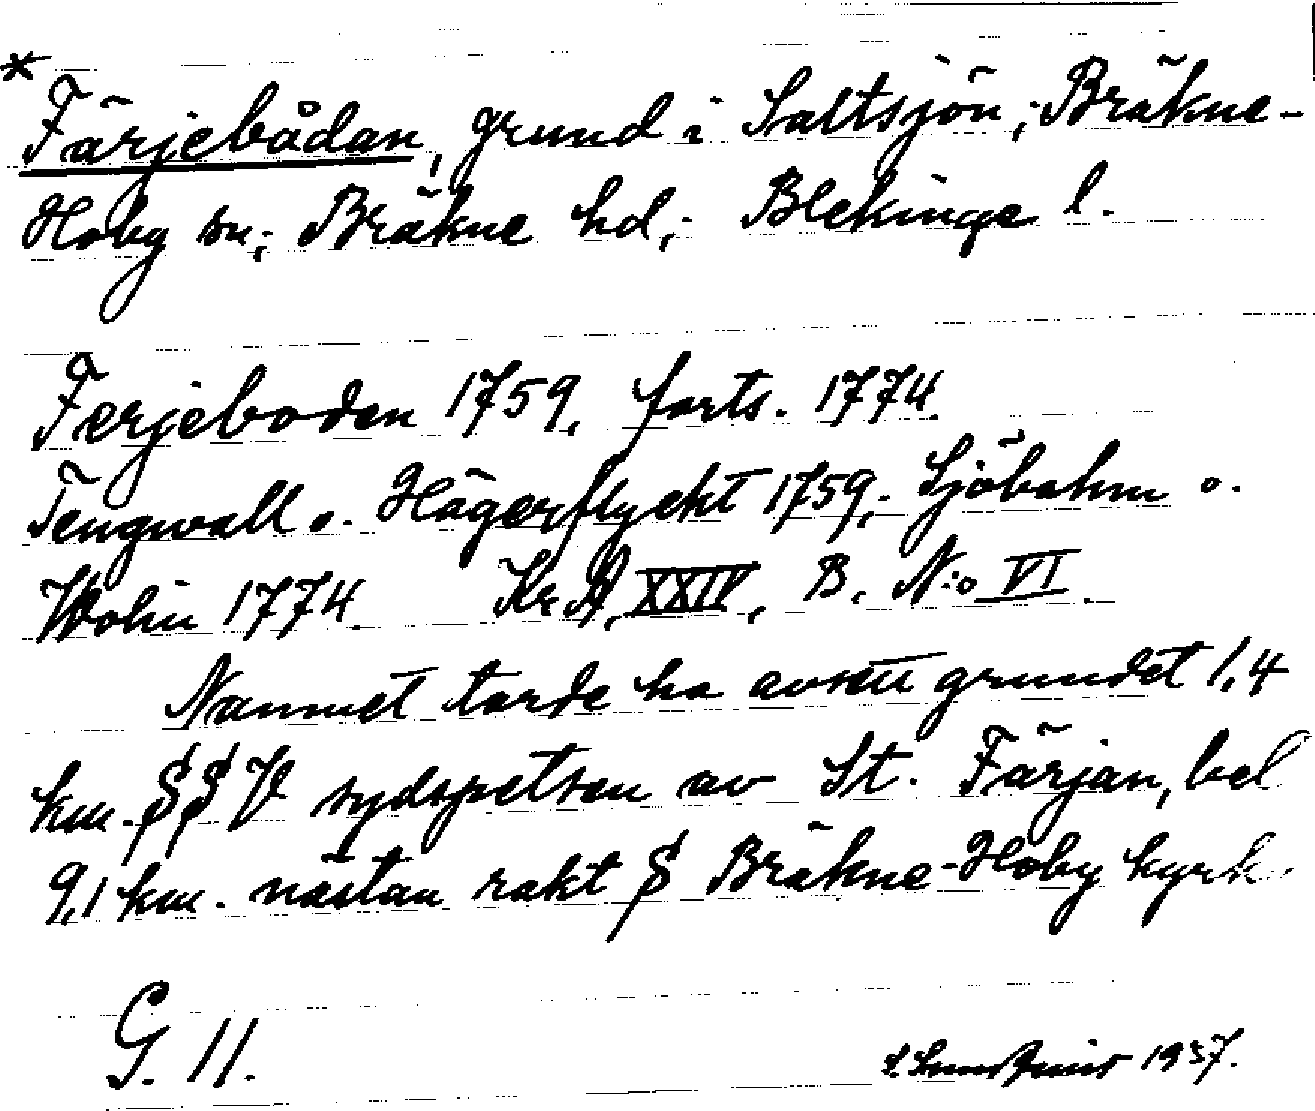 * Färjebådan, grund i Saltsjön; Bräkne-
Hoby sn; Bräkne hd; Blekinge l.
Ferjeboden 1759, forts. 1774.
Tengwall o. Hägerflycht 1759; Sjöbohm o.
Wolin 1774. Kr. A. XXIV, B. N:o VI.
Namnet torde ha avsett grundet 1,4
km. SSV sydspetsen av St. Färjan, bel
9,1 km. nästan rakt S Bräkne-Hoby kyrk.
G. 11.
1937.